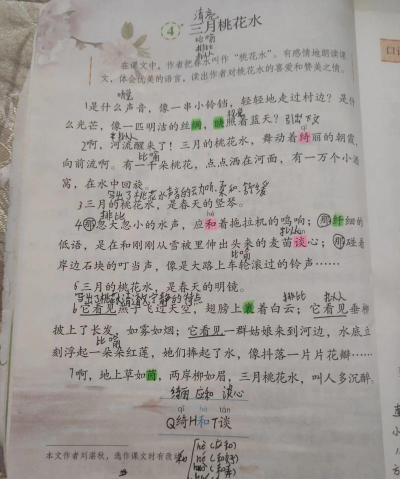 清亮
④ 三月桃花水
比喻
排比
拟人
在课文中，作者把春水叫作“桃花水”。有感情地朗读课
文，体会优美的语言，读出作者对桃花水的喜爱和赞美之情。
1是什么声音，像一串小铃铛，轻轻地走过村边？是什
么光芒，像一匹明洁的丝绸，映照着蓝天？引出下文
2啊，河流醒来了！三月的桃花水，舞动着绮丽的朝霞，
向前流啊。有一千朵桃花，点点洒在河面，有一万个小酒
比喻
窝，在水中回旋。
3三月的桃花水，是春天的竖琴。
排比
4那忽大忽小的水声，应和着拖拉机的鸣响；那纤细的
低语，是在和刚刚从雪被里伸出头来的麦苗谈心；那碰着
比喻
岸边石块的叮当声，像是大路上车轮滚过的铃声……
5三月的桃花水，是春天的明镜。
排比 拟人
6它看见燕子飞过天空，翅膀上裹着白云；它看见垂柳
披上了长发，如雾如烟；它看见一群姑娘来到河边，水底立
比喻
刻浮起一朵朵红莲，她们捧起了水，像抖落一片片花瓣……
7啊，地上草如茵，两岸柳如眉，三月桃花水，叫人多沉醉。
绮丽 应和 谈心
qǐ hè tán
Q绮H和T谈
本文作者刘湛秋，选作课文时有改动
和